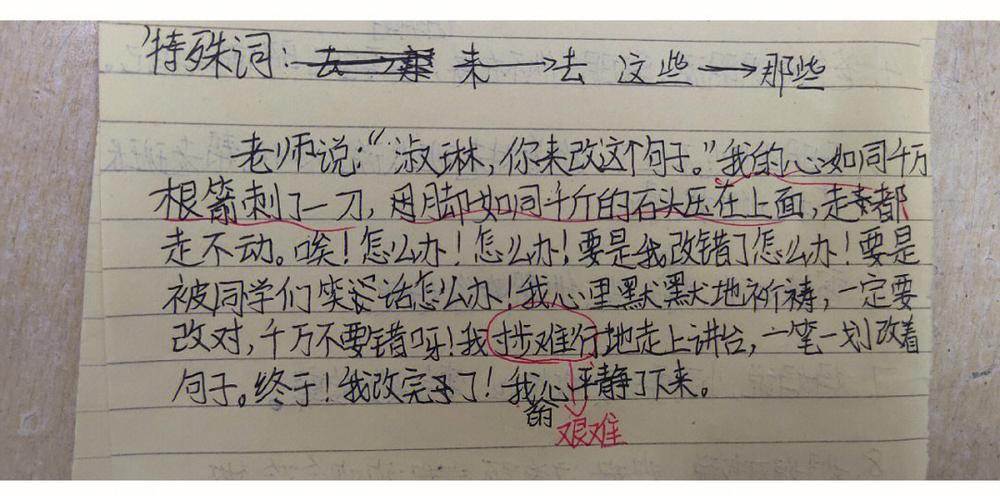 特殊词: 来→去 这些→那些
老师说:“淑琳,你来改这个句子。”我的心如同千万
根箭刺了一刀,用脚如同千斤的石头压在上面,走都
走不动。唉!怎么办!怎么办!要是我改错了怎么办!要是
被同学们笑话怎么办!我心里默默地祈祷,一定要
改对,千万不要错呀!我寸步难行地走上讲台,一笔一划改着
句子。终于!我改完了!我的心平静了下来。
艰难